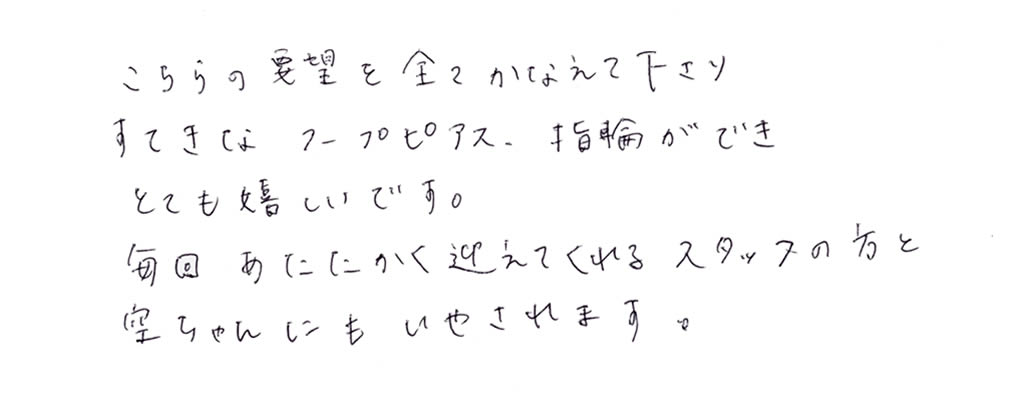 こちらの要望を全てかなえて下さり
すてきな フープピアス、指輪ができ
とても嬉しいです。
毎回 あたたかく迎えてくれる スタッフの方と
空ちゃんにも いやされます。